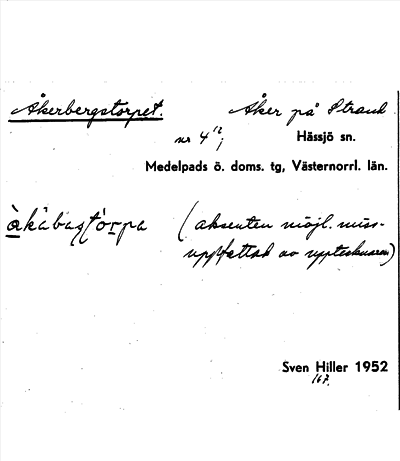 Åkerbergstorpet. Åker på Strand
nr 4¹²;
Hässjö sn.
Medelpads ö. doms. tg, Västernorrl. län.
(aksenten möjl. miss-
uppfattad av uppteknaren)
Sven Hiller 1952
167.